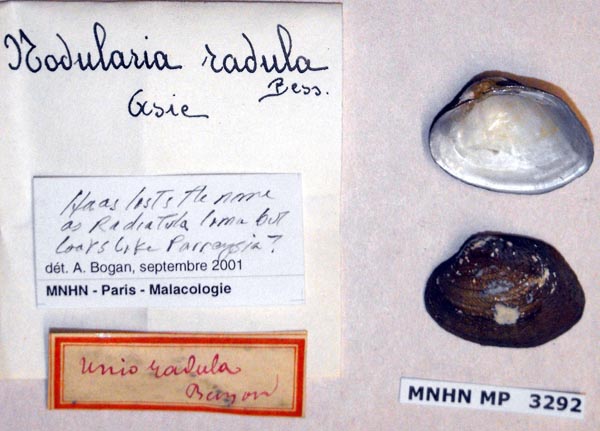 Nodularia radula
Bess.
Asie
Haas lists the name
as Radiatula lima but
looks like Parreysia?
dét. A. Bogan, septembre 2001
MNHN - Paris - Malacologie
Unio radula
MNHN MP 3292